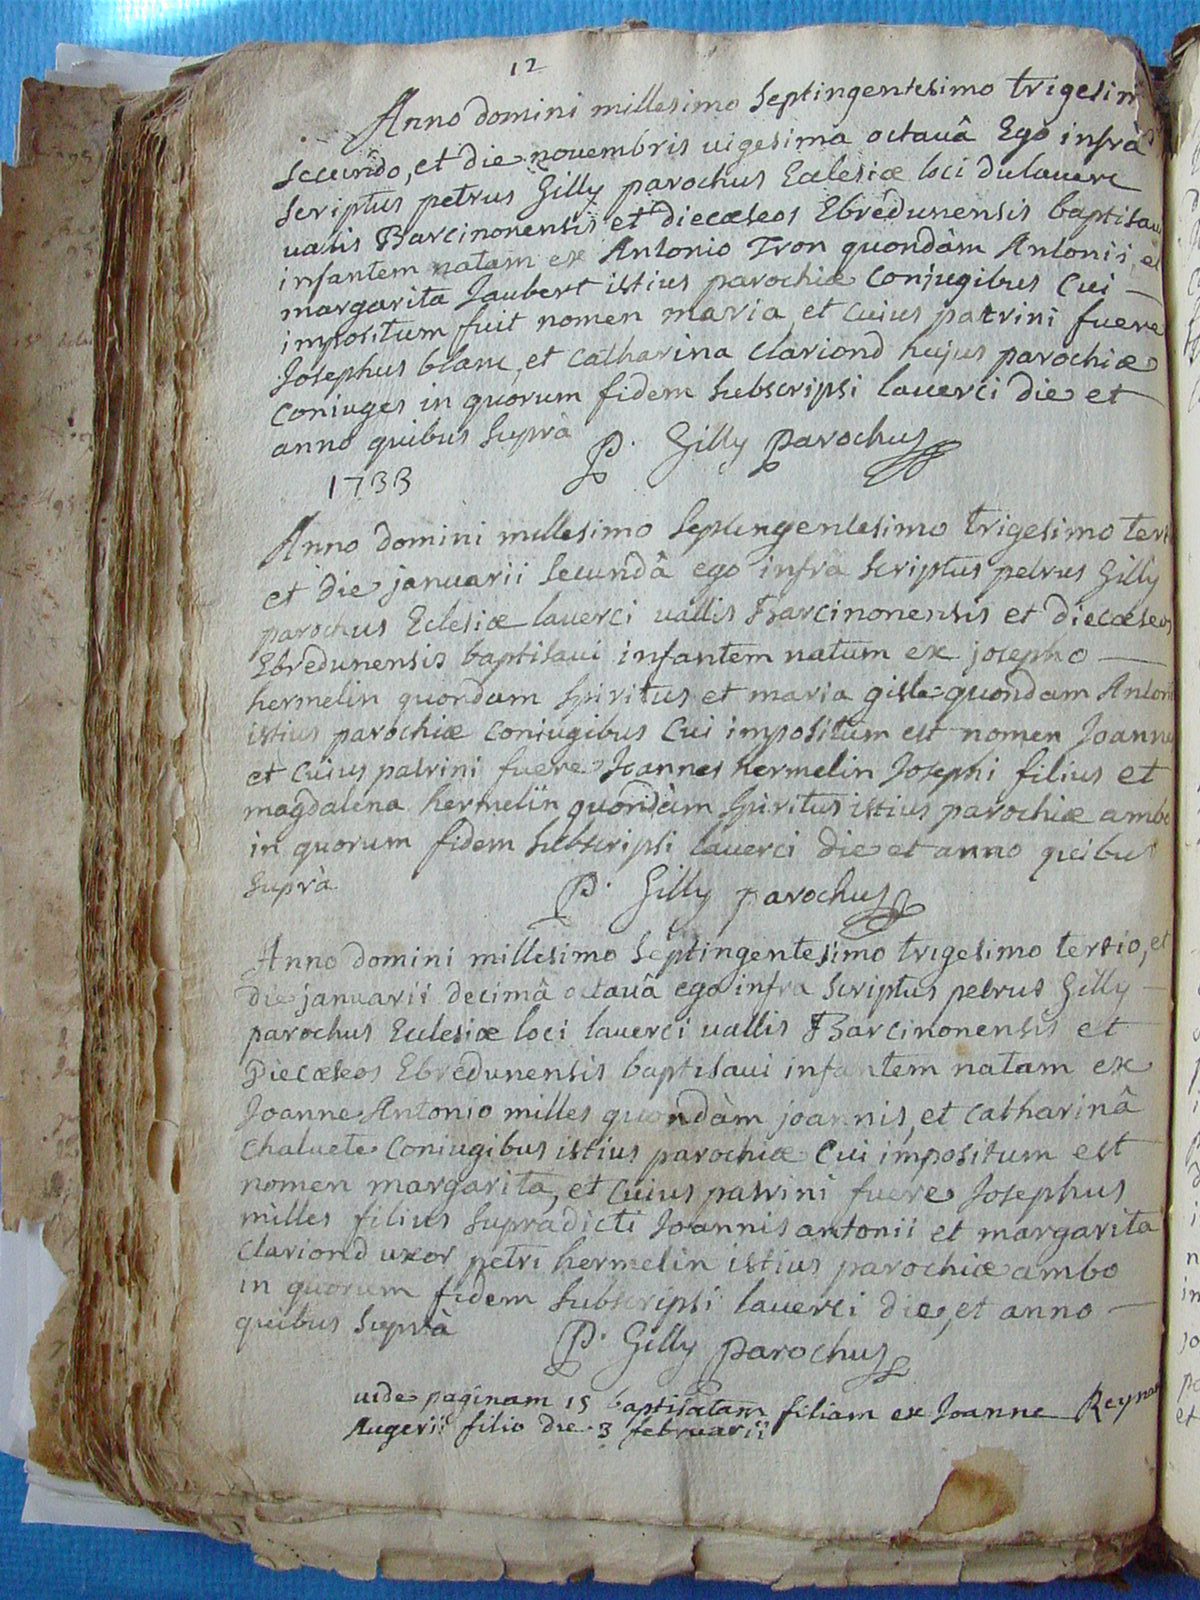 12
Anno domini millesimo septingentesimo trigesim
secundo, et die novembris uigesima octauâ Ego infrà
scriptus petrus Gilly parochus Ecclesiæ loci dulauerc
uallis Barcinonensis et diecæseos Ebredunensis baptisaui
infantem natam ex Antonio Tron quondàm Antonii, et
margarita Jaubert istius parochiæ conjugibus Cui —
impositum fuit nomen maria, et cuius patrini fuere
Josephus blanc, et catharina clariond hujus parochiæ
coniuges in quorum fidem subscripsi lauerci die et
anno quibus suprà P. Gilly parochus
1733
Anno domini millesimo septingentesimo trigesimo terti
et die januarii secundâ ego infrà scriptus petrus Gilly
parochus Eclesiæ lauerci uallis Barcinonensis et diecæseos
Ebredunensis baptisaui infantem natum ex josepho —
hermelin quondam spiritus et maria gisle quondam Antonii
istius parochiæ coniugibus Cui impositum est nomen Joannes
et cuius patrini fuere Joannes hermelin Josephi filius et
magdalena hermelin quondàm spiritus istius parochiæ ambo
in quorum fidem subscripsi lauerci die et anno quibus
suprà P. Gilly parochus
Anno domini millesimo septingentesimo trigesimo tertio, et
die januarii decimâ octauâ ego infra scriptus petrus Gilly —
parochus Ecclesiæ loci lauerci uallis Barcinonensis et
Diecæseos Ebredunensis baptisaui infantem natam ex
Joanne Antonio milles quondàm joannis, et catharinâ
chaluete coniugibus istius parochiæ Cui impositum est
nomen margarita, et cuius patrini fuere Josephus
milles filius supradicti Joannis antonii et margarita
Clariond uxor petri hermelin istius parochiæ ambo
in quorum fidem subscripsi lauerci die, et anno —
quibus suprà P. Gilly parochus
uide paginam 15 baptisatam filiam ex Joanne Reynau
Augerii filio die 3 februarii